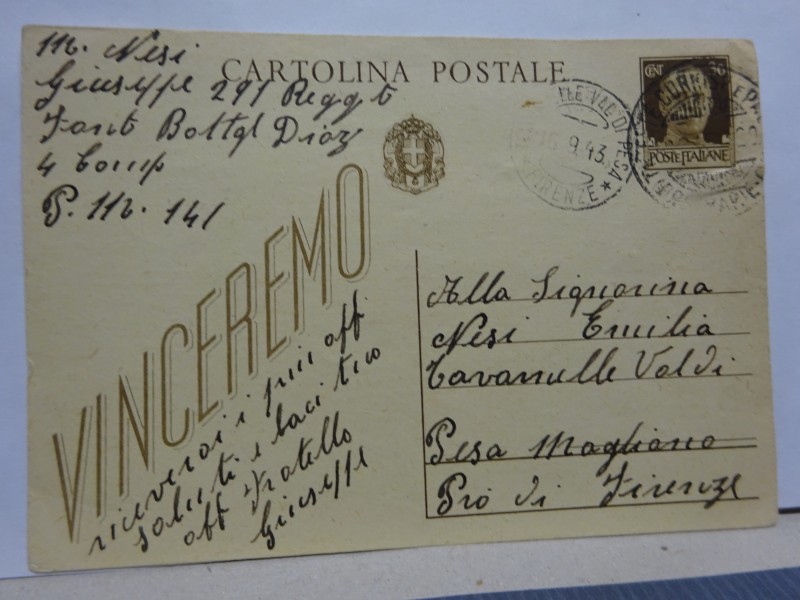 M. Nesi
Giuseppe 291 Regg t
Fant Battgl Diaz
4 Comp
P. M. 141
CARTOLINA POSTALE
CENT 30
POSTE ITALIANE
VAL DI PESA
9.43
FIRENZE
VINCEREMO
riceverai i piu aff
saluti e baci tuo
aff Fratello
Giuseppe
Alla Signorina
Nesi Emilia
Tavarnulle Valdi
Pesa Magliano
Pro di Firenze